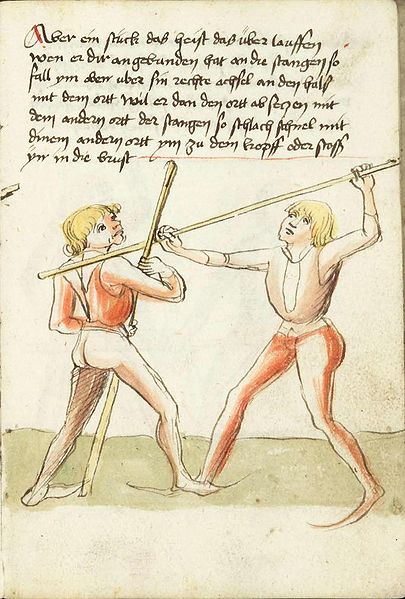 Aber ein stuck das heist das über lauffen
wen er dir an gebunden hat an die stangen so
fall ym oben uber sin rechte achsel an den halß
mit dem ortt wil er dan den ortt ab seczen mit
dem andern ortt der stangen so schlach schnel mit
dinem andern ortt ym zu dem kopff oder stoß
yn in die brust